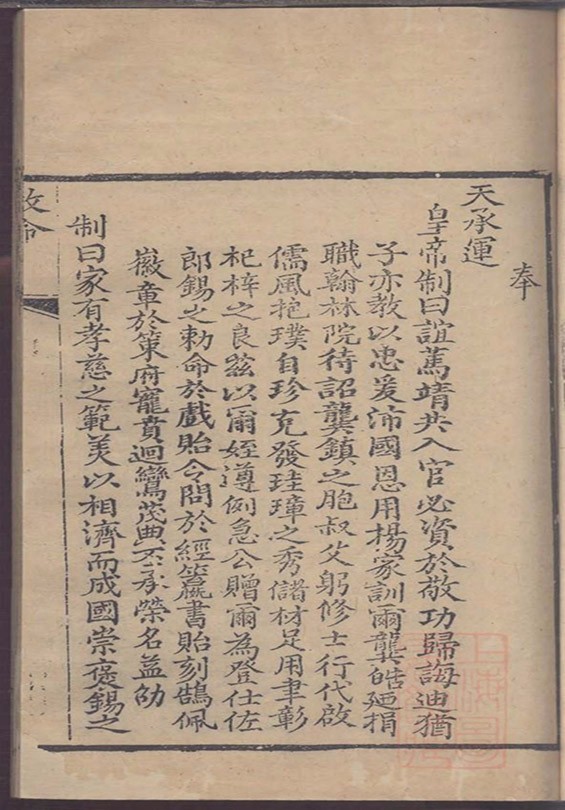 奉
天承運
皇帝制曰誼篤靖共入官必資於敬功歸誨迪猶
子亦教以忠爰沛國恩用揚家訓爾龔皓廼捐
職翰林院待詔龔鎮之胞叔父躬修士行代啟
儒風抱璞自珍克發珪璋之秀儲材足用聿彰
杞梓之良茲以爾姪遵例急公贈爾為登仕佐
郎錫之勅命於戲貽令問於經籯書貽刻鵠佩
徽章於策府寵賁迴鸞茂典丕承榮名益劭
制曰家有孝慈之範美以相濟而成國崇褒錫之